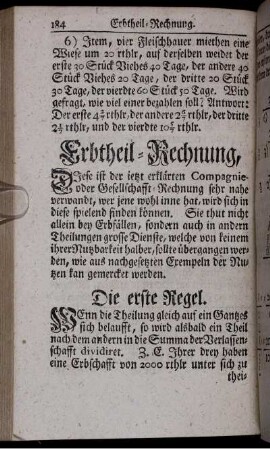 184 Erbtheil-Rechnung.
6) Item, vier Fleischhauer miethen eine
Wiese um 20 rthlr, auf derselben weidet der
erste 30 Stück Viehes 40 Tage, der andere 40
Stück Viehes 20 Tage, der dritte 20 Stück
30 Tage, der vierdte 60 Stück 50 Tage. Wird
gefragt, wie viel einer bezahlen soll? Antwort:
Der erste rthlr, der andere rthlr, der dritte
rthlr, und der vierdte rthlr.
Erbtheil-Rechnung,
Diese ist der jetzt erklärten Compagnie-
oder Gesellschafft-Rechnung sehr nahe
verwandt, wer jene wohl inne hat, wird sich in
diese spielend finden können. Sie thut nicht
allein bey Erbfällen, sondern auch in andern
Theilungen grosse Dienste, welche von keinem
ihrer Nutzbarkeit halber, sollte übergangen wer-
den, wie aus nachgesetzten Exempeln der Nu-
tzen kan gemercket werden.
Die erste Regel.
Wenn die Theilung gleich auf ein Gantzes
sich belaufft, so wird alsbald ein Theil
nach dem andern in die Summa der Verlassen-
schafft dividiret. Z. E. Ihrer drey haben
eine Erbschafft von 2000 rthlr unter sich zu
thei-